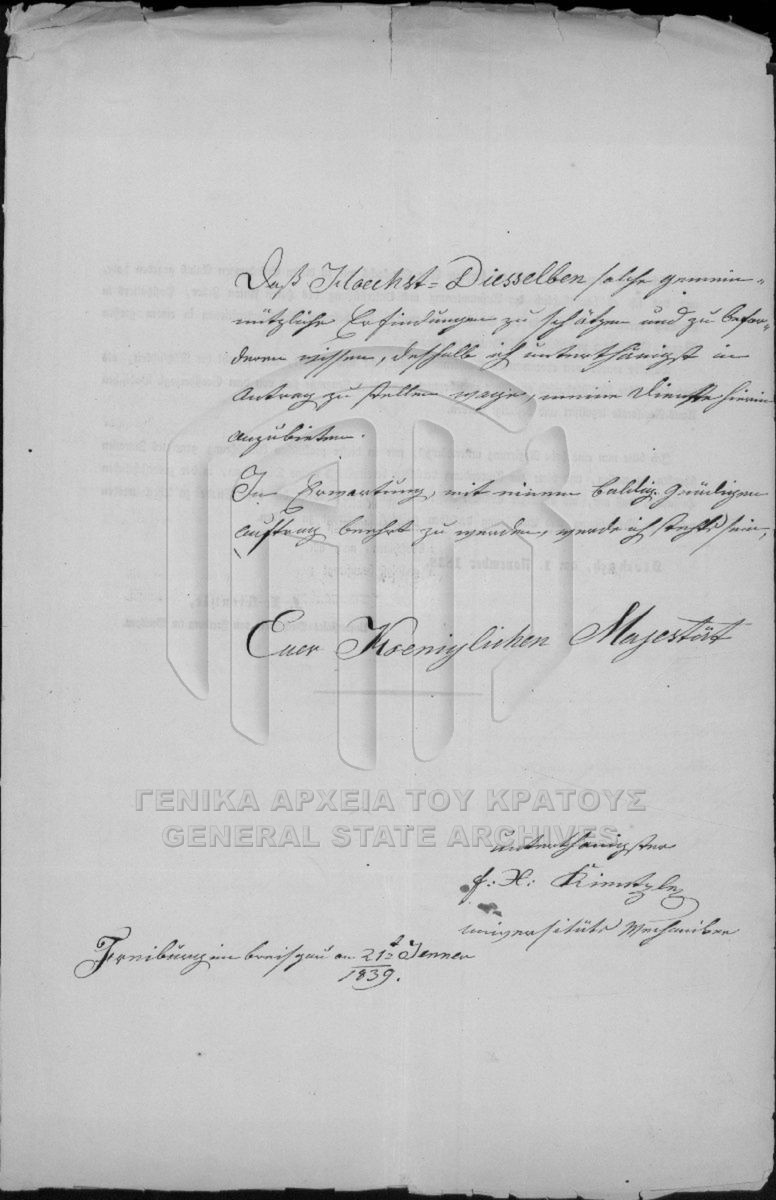 Daß Hoechst-Diesselben solche gemein-
nützliche Erfindungen zu schätzen und zu befor-
dern wissen, deßhalb ich unterthänigst in
Antrag zu stellen wage, meine Dienste hierin
anzubieten.
In Erwartung, mit einem baldig. gnädigen
Auftrag beehrt zu werden, werde ich stehts sein,
Euer Koeniglichen Majestät
ΓΕΝΙΚΑ ΑΡΧΕΙΑ ΤΟΥ ΚΡΑΤΟΥΣ
GENERAL STATE ARCHIVES
unterthänigster
f: X:
universitäts Mechaniker
Freiburg im breisgau am 21t Jenner
1839.